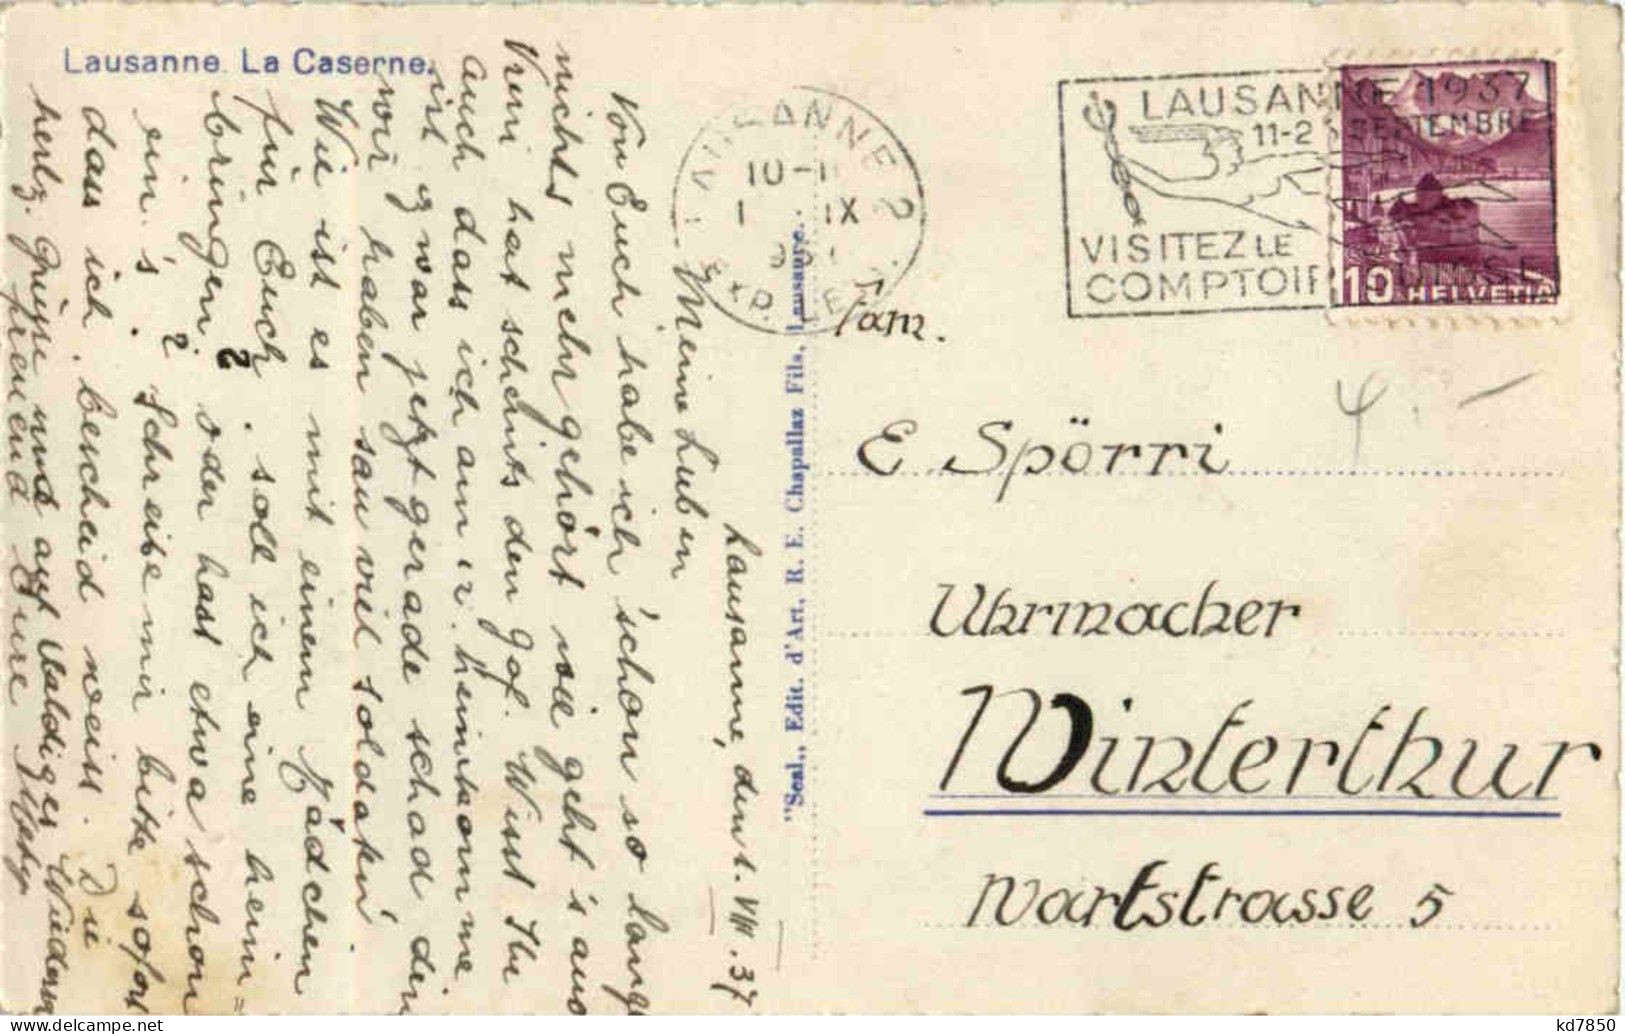 Lausanne. La Caserne.
Lausanne, den 1. VIII. 37
Meine Lieben
Von Euch habe ich schon so lange
nichts mehr gehört wie geht's auch
Vreni hat scheints den Gof. Wisst Ihr
auch dass ich am 12. heimkomme
ist zwar jetzt gerade schad den
wir haben sau viel soldaten
Wie ist es mit einem Mädchen
für Euch. soll ich eine heim=
bringen? oder hast etwa schon
ein's? Schreibe mir bitte sofort
dass ich bescheid weiss. Die
hertz. Grüsse und auf baldiges Wiedersehn
freund Eure
"Seal„ Edit. d'Art., R. E. Chapallaz Fils, Lausanne.
LAUSANNE 2
10-11
1 IX
LAUSANNE 1937
11-2 SEPTEMBRE
VISITEZ LE
COMPTOIR SUISSE
10 HELVETIA
Fam.
E. Spörri
Uhrmacher
Winterthur
Wartstrasse 5
4.-
kd7850